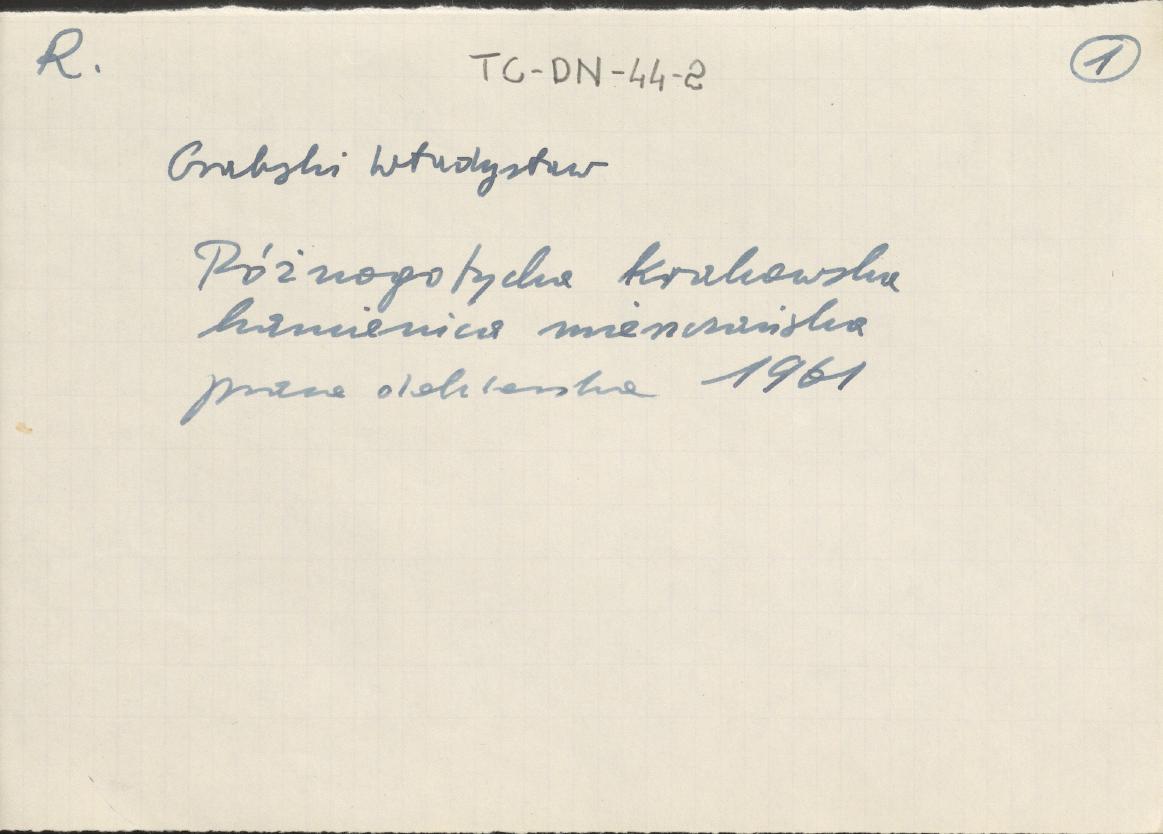 R.
TC-DN-44-2
1
Grabski Władysław
Późnogotycka krakowska
kamienica mieszczańska
praca doktorska 1961